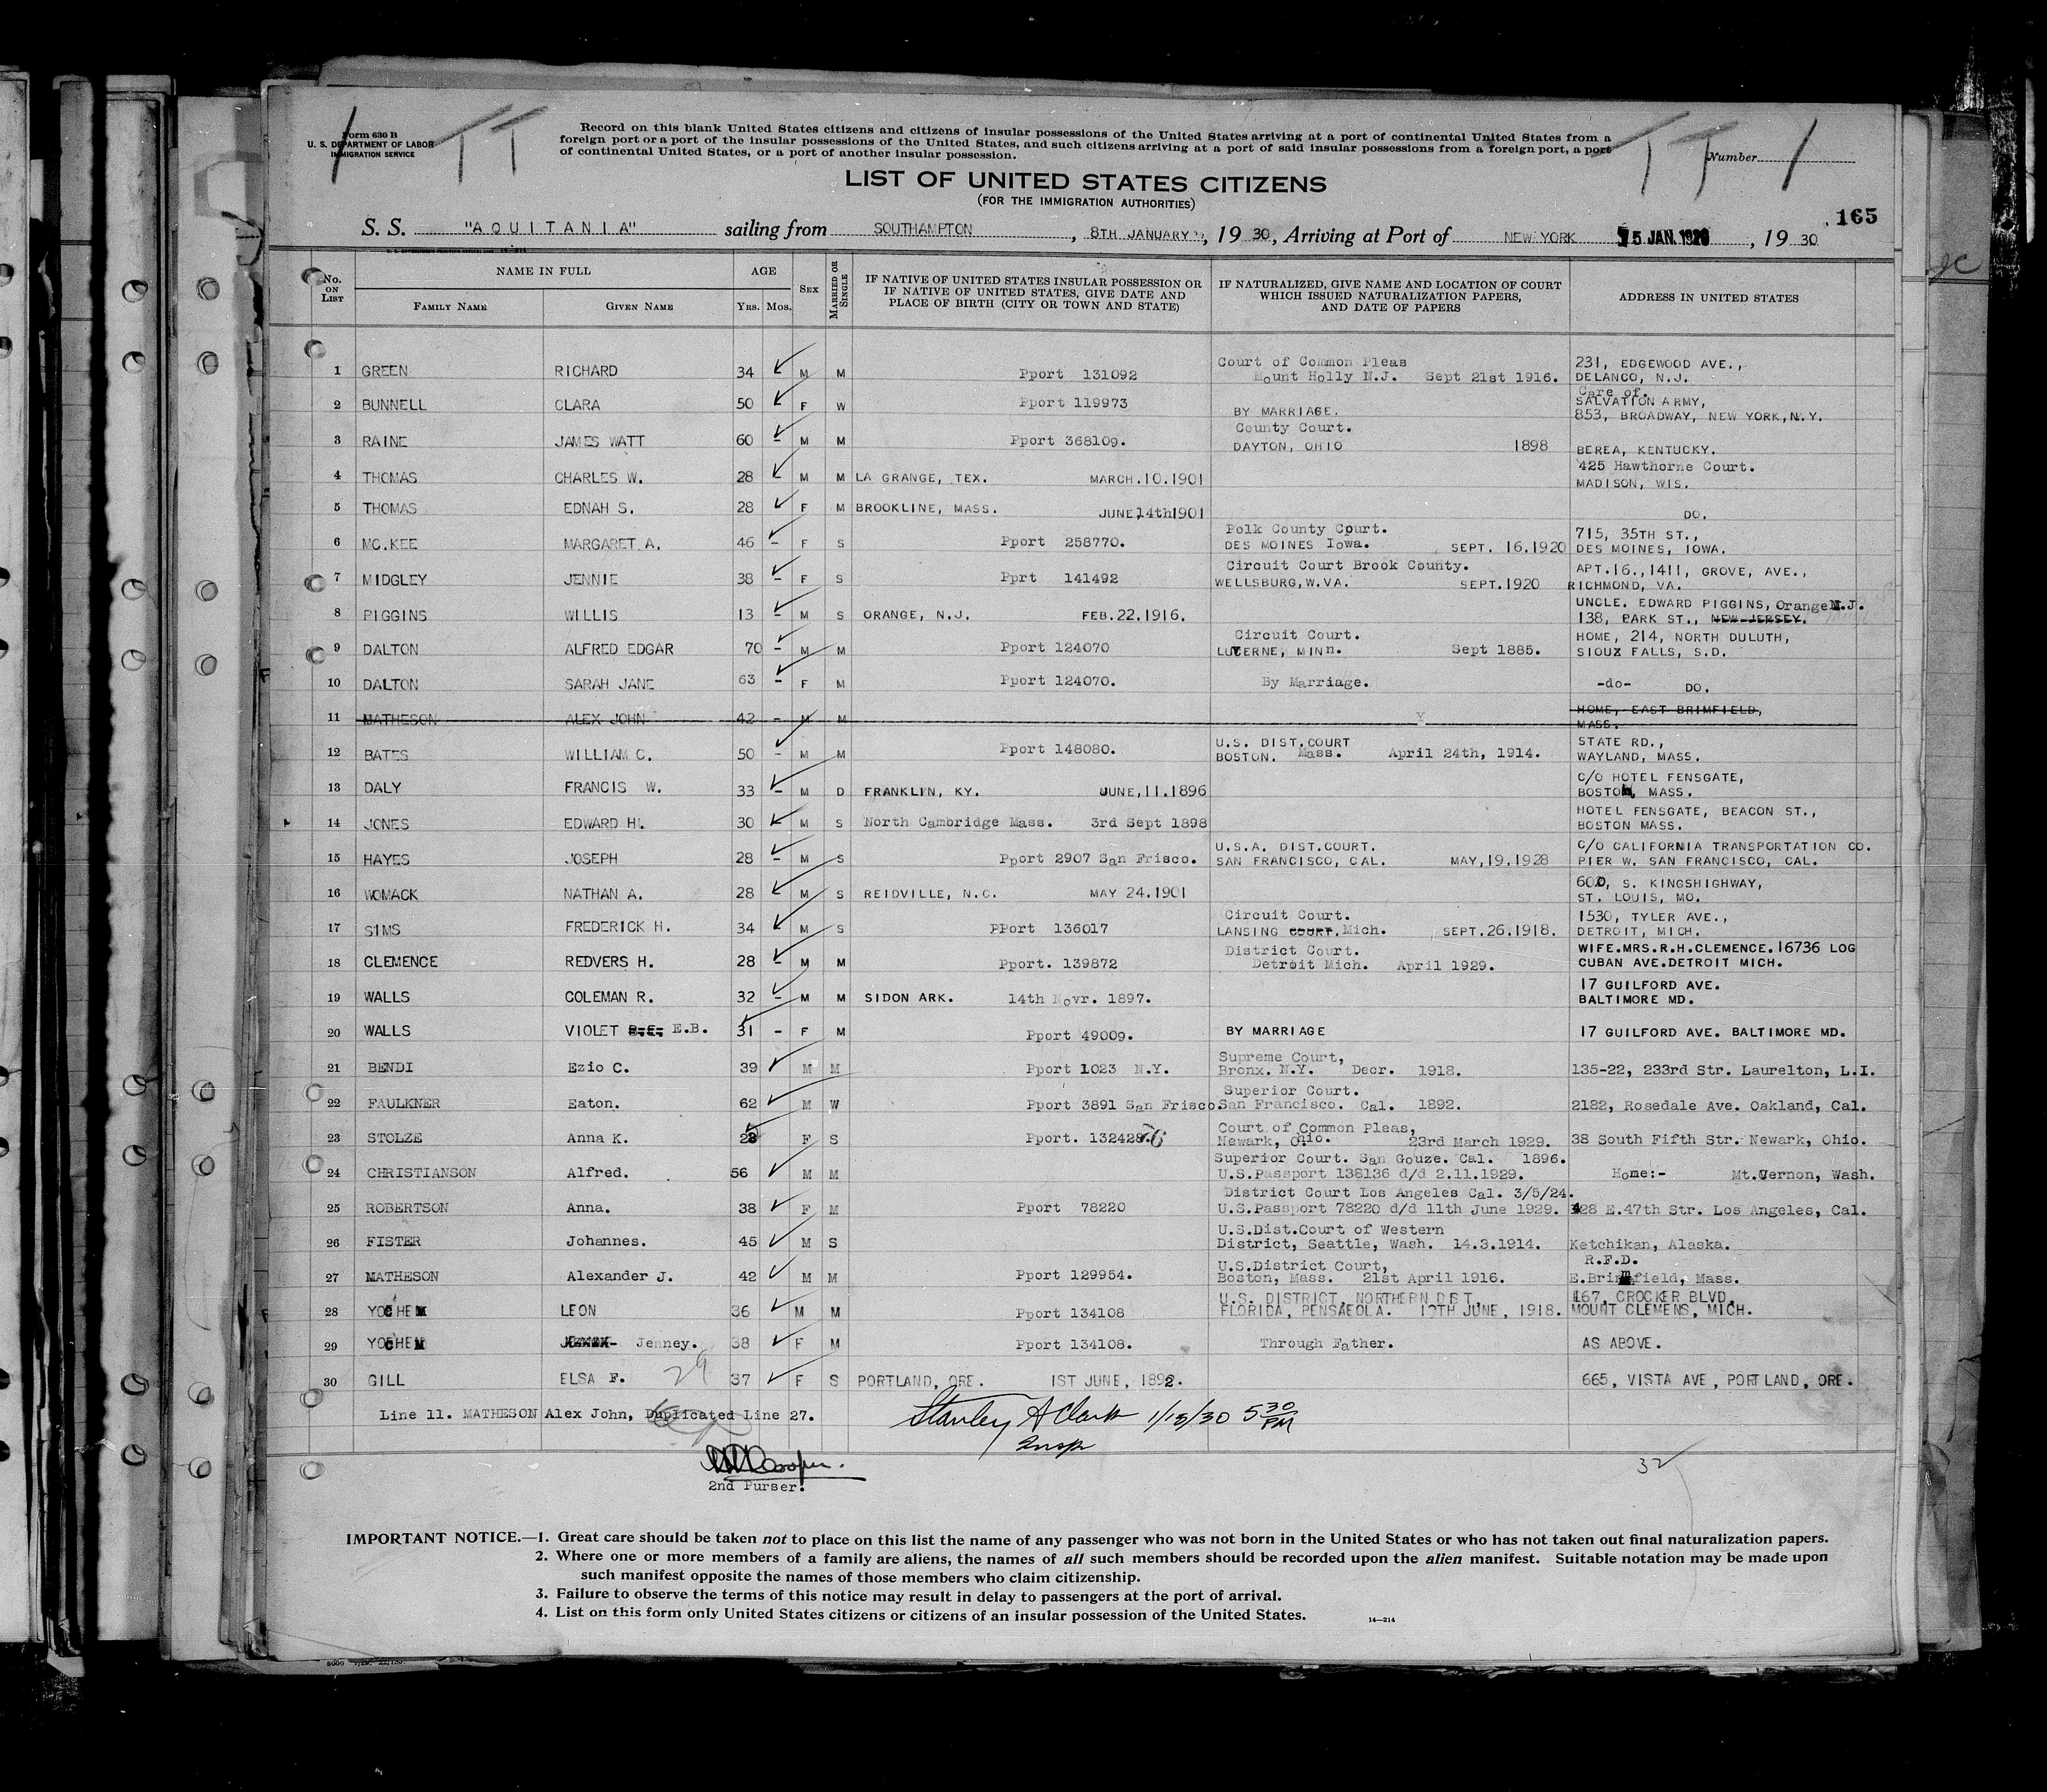 Form 630 B
U. S. DEPARTMENT OF LABOR
IMMIGRATION SERVICE
TT
Record on this blank United States citizens and citizens of insular possessions of the United States arriving at a port of continental United States from a
foreign port or a port of the insular possessions of the United States, and such citizens arriving at a port of said insular possessions from a foreign port, a port
of continental United States, or a port of another insular possession.
TT
Number
LIST OF UNITED STATES CITIZENS
(FOR THE IMMIGRATION AUTHORITIES)
165
S. S. "AQUITANIA" sailing from SOUTHAMPTON, 8TH JANUARY, 1930, Arriving at Port of NEW YORK 15 JAN. 1930, 1930
No. ON LIST
NAME IN FULL
FAMILY NAME
GIVEN NAME
AGE
YRS. MOS.
SEX
MARRIED OR SINGLE
IF NATIVE OF UNITED STATES INSULAR POSSESSION OR
IF NATIVE OF UNITED STATES, GIVE DATE AND
PLACE OF BIRTH (CITY OR TOWN AND STATE)
IF NATURALIZED, GIVE NAME AND LOCATION OF COURT
WHICH ISSUED NATURALIZATION PAPERS,
AND DATE OF PAPERS
ADDRESS IN UNITED STATES
Court of Common Pleas 231, EDGEWOOD AVE.,
1 GREEN RICHARD 34 M M Pport 131092 Mount Holly N.J. Sept 21st 1916. DELANCO, N.J.
Care of.
SALVATION ARMY,
2 BUNNELL CLARA 50 F W Pport 119973 BY MARRIAGE. 853, BROADWAY, NEW YORK, N.Y.
County Court.
3 RAINE JAMES WATT 60 - M M Pport 368109. DAYTON, OHIO 1898 BEREA, KENTUCKY.
425 Hawthorne Court.
4 THOMAS CHARLES W. 28 M M LA GRANGE, TEX. MARCH.10.1901 MADISON, WIS.
5 THOMAS EDNAH S. 28 F M BROOKLINE, MASS. JUNE,14th1901 DO.
Polk County Court. 715, 35TH ST.,
6 MC.KEE MARGARET A. 46 - F S Pport 258770. DES MOINES Iowa. SEPT. 16.1920 DES MOINES, IOWA.
Circuit Court Brook County. APT.16.,1411, GROVE, AVE.,
7 MIDGLEY JENNIE 38 - F S Pprt 141492 WELLSBURG,W.VA. SEPT.1920 RICHMOND, VA.
UNCLE. EDWARD PIGGINS, Orange N.J.
8 PIGGINS WILLIS 13 - M S ORANGE, N.J. FEB.22.1916. 138, PARK ST., NEW JERSEY.
Circuit Court. HOME, 214, NORTH DULUTH,
9 DALTON ALFRED EDGAR 70 - M M Pport 124070 LUVERNE, MINn. Sept 1885. SIOUX FALLS, S.D.
10 DALTON SARAH JANE 63 - F M Pport 124070. By Marriage. -do- DO.
HOME, EAST BRIMFIELD,
11 MATHESON ALEX JOHN 42 - M M MASS.
U.S. DIST.COURT STATE RD.,
12 BATES WILLIAM C. 50 - M M Pport 148080. BOSTON. Mass. April 24th, 1914. WAYLAND, MASS.
C/O HOTEL FENSGATE,
13 DALY FRANCIS W. 33 - M D FRANKLIN, KY. JUNE,11.1896 BOSTON, MASS.
HOTEL FENSGATE, BEACON ST.,
14 JONES EDWARD H. 30 M S North Cambridge Mass. 3rd Sept 1898 BOSTON MASS.
U.S.A. DIST.COURT. C/O CALIFORNIA TRANSPORTATION CO.
15 HAYES JOSEPH 28 - M S Pport 2907 San Frisco. SAN FRANCISCO, CAL. MAY,19.1928 PIER W. SAN FRANCISCO, CAL.
600, S. KINGSHIGHWAY,
16 WOMACK NATHAN A. 28 M S REIDVILLE, N.C. MAY 24.1901 ST. LOUIS, MO.
Circuit Court. 1530, TYLER AVE.,
17 SIMS FREDERICK H. 34 M S PPort 136017 LANSING COURT, Mich. SEPT.26.1918. DETROIT, MICH.
District Court. WIFE.MRS.R.H.CLEMENCE.16736 LOG
18 CLEMENCE REDVERS H. 28 - M M Pport. 139872 Detroit Mich. April 1929. CUBAN AVE.DETROIT MICH.
17 GUILFORD AVE.
19 WALLS COLEMAN R. 32 - M M SIDON ARK. 14th Novr. 1897. BALTIMORE MD.
20 WALLS VIOLET E.B. 31 - F M Pport 49009. BY MARRIAGE 17 GUILFORD AVE. BALTIMORE MD.
Supreme Court,
21 BENDI Ezio C. 39 M M Pport 1023 N.Y. Bronx. N.Y. Decr. 1918. 135-22, 233rd Str. Laurelton, L.I.
Superior Court.
22 FAULKNER Eaton. 62 M W Pport 3891 San Frisco. San Francisco. Cal. 1892. 2182, Rosedale Ave. Oakland, Cal.
Court of Common Pleas,
23 STOLZE Anna K. 28 F S Pport. 132428 Newark, Ohio. 23rd March 1929. 38 South Fifth Str. Newark, Ohio.
Superior Court. San Gouze. Cal. 1896.
24 CHRISTIANSON Alfred. 56 M M U.S.Passport 138136 d/d 2.11.1929. Home:- Mt.Vernon, Wash.
District Court Los Angeles Cal. 3/5/24.
25 ROBERTSON Anna. 38 F M Pport 78220 U.S.Passport 78220 d/d 11th June 1929. 428 E.47th Str. Los Angeles, Cal.
U.S.Dist.Court of Western
26 FISTER Johannes. 45 M S District, Seattle, Wash. 14.3.1914. Ketchikan, Alaska.
U.S.District Court, R.F.D.
27 MATHESON Alexander J. 42 M M Pport 129954. Boston, Mass. 21st April 1916. E.Brimfield, Mass.
U.S. DISTRICT, NORTHERN DIST 167, CROCKER BLVD,
28 YOCHEM LEON 36 M M Pport 134108 FLORIDA, PENSAEOLA. 12TH JUNE, 1918. MOUNT CLEMENS, MICH.
29 YOCHEM Jenney. 38 F M Pport 134108. Through Father. AS ABOVE.
30 GILL ELSA F. 29 37 F S PORTLAND, ORE. 1ST JUNE, 1892. 665, VISTA AVE, PORTLAND, ORE.
Line 11. MATHESON Alex John, Duplicated Line 27. Stanley A Clark 1/15/30 5 30 PM
Insp
Cooper.
2nd Purser.
32
IMPORTANT NOTICE.—1. Great care should be taken not to place on this list the name of any passenger who was not born in the United States or who has not taken out final naturalization papers.
2. Where one or more members of a family are aliens, the names of all such members should be recorded upon the alien manifest. Suitable notation may be made upon
such manifest opposite the names of those members who claim citizenship.
3. Failure to observe the terms of this notice may result in delay to passengers at the port of arrival.
4. List on this form only United States citizens or citizens of an insular possession of the United States.
14—214